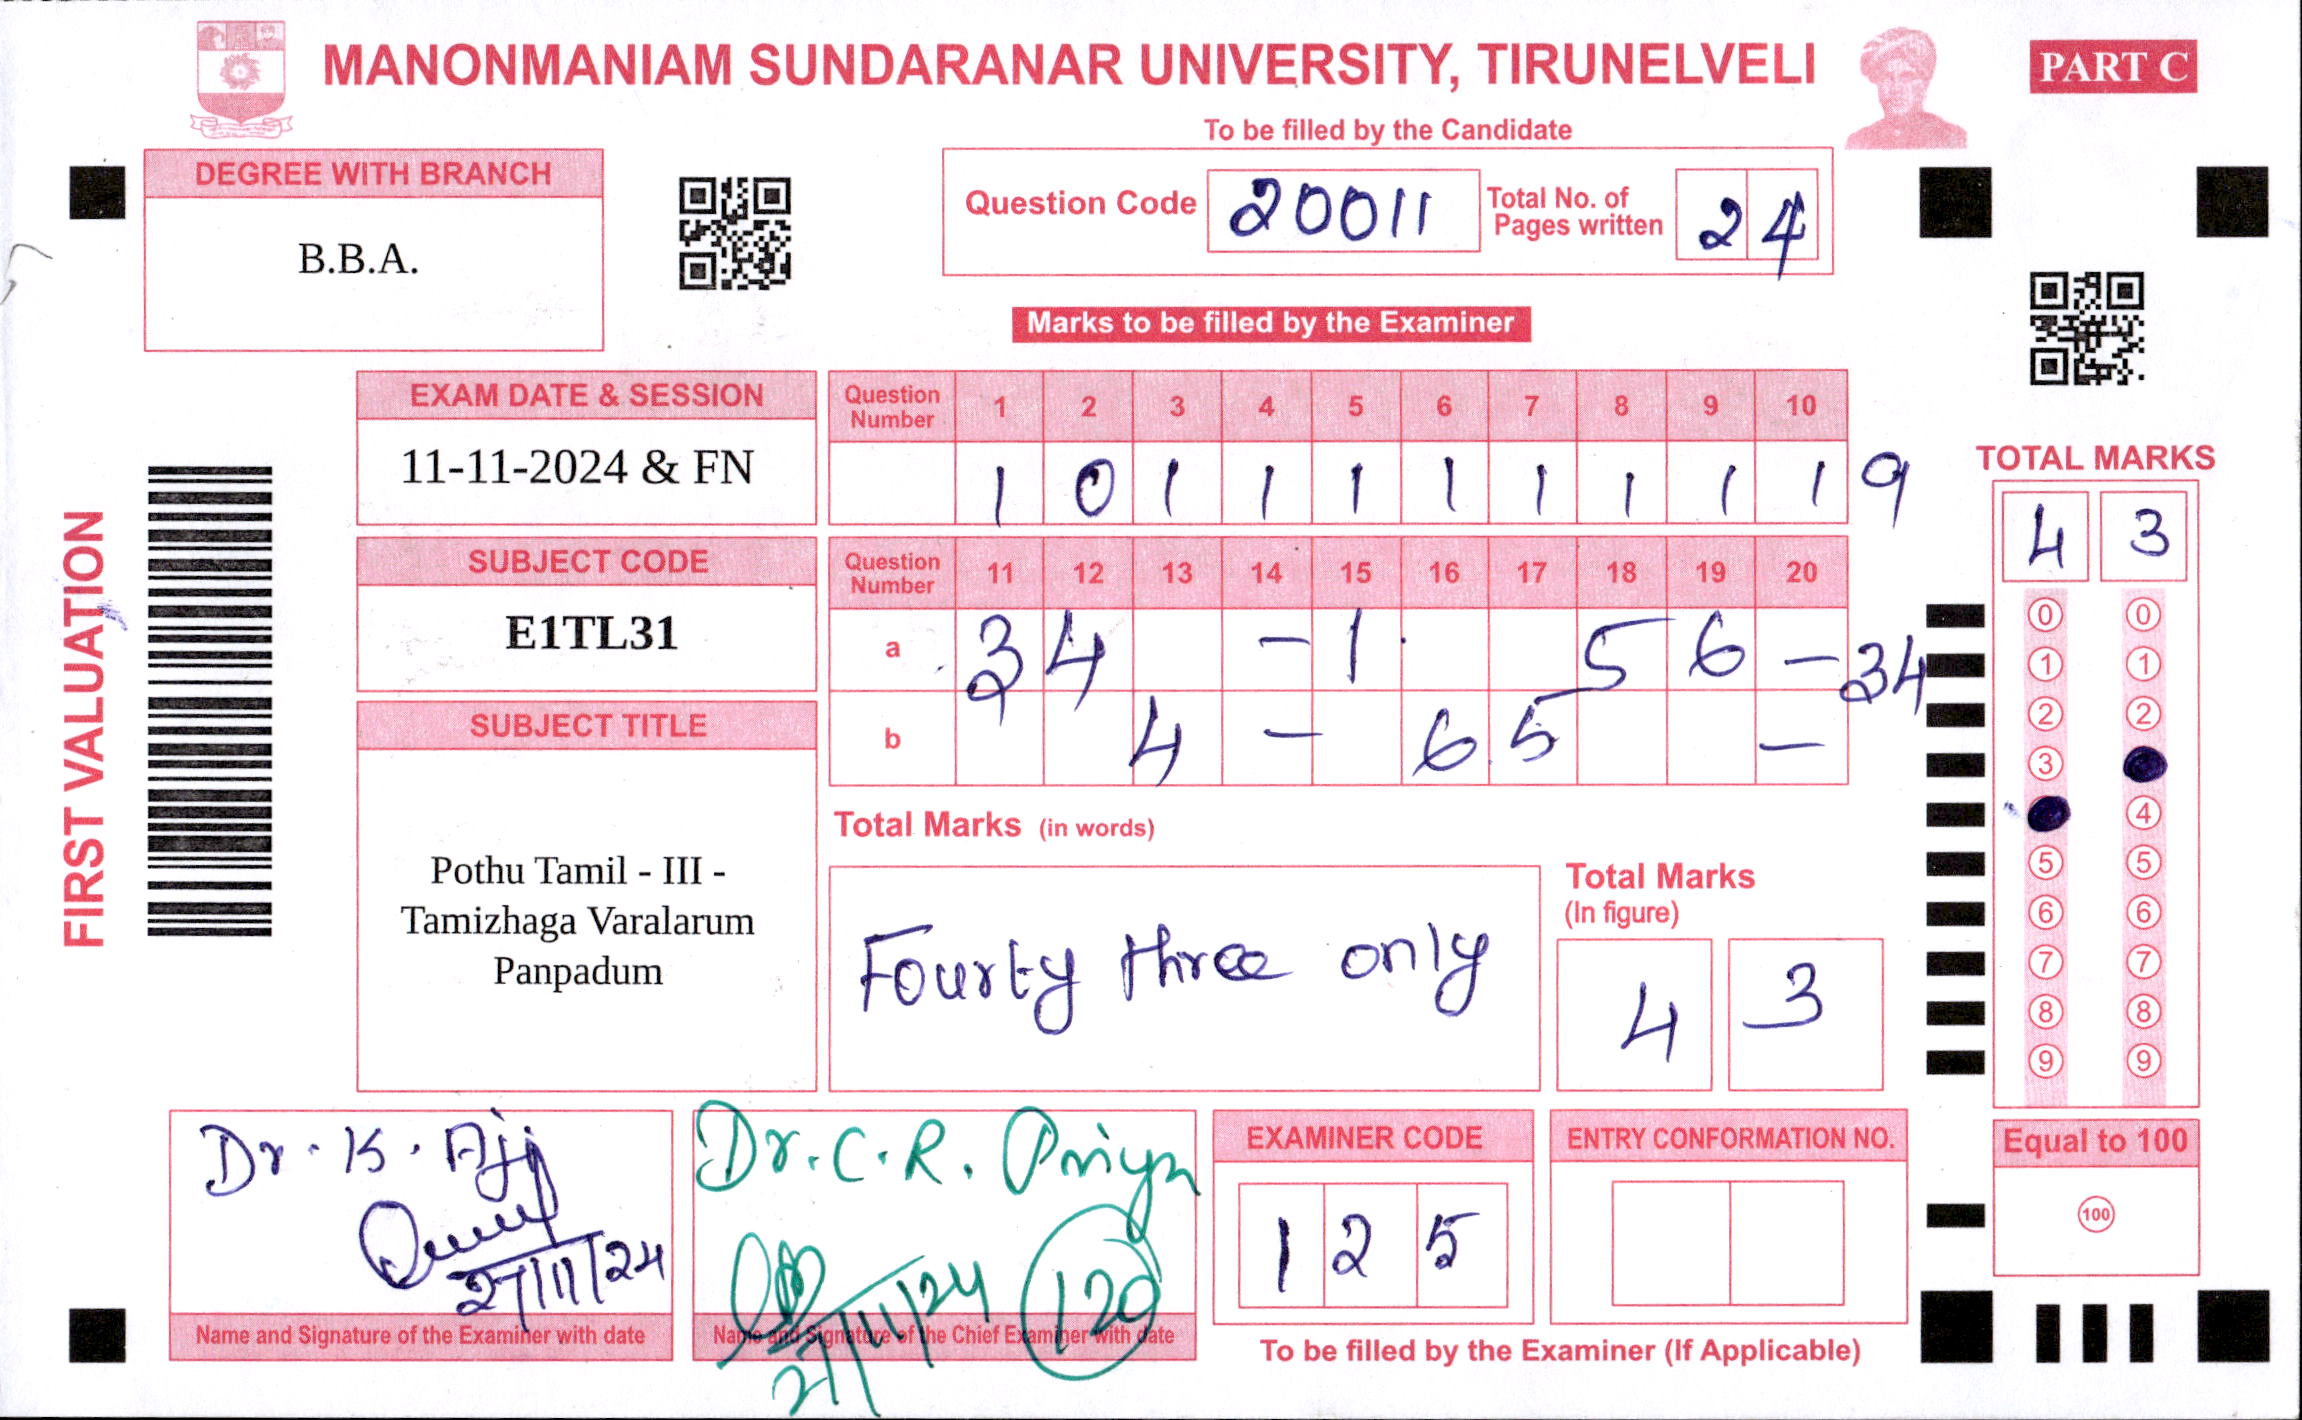 MANONMANIAM SUNDARANAR UNIVERSITY, TIRUNELVELI
PART C
To be filled by the Candidate
DEGREE WITH BRANCH
B.B.A.
Question Code 20011 Total No. of Pages written 24
Marks to be filled by the Examiner
EXAM DATE & SESSION
11-11-2024 & FN
Question Number 1 2 3 4 5 6 7 8 9 10
1 0 1 1 1 1 1 1 1 1 9
SUBJECT CODE
E1TL31
Question Number 11 12 13 14 15 16 17 18 19 20
a 3 4 - 1 5 6 - 34
b 4 - 6 5 -
SUBJECT TITLE
Pothu Tamil - III -
Tamizhaga Varalarum
Panpadum
Total Marks (in words)
Fourty three only
Total Marks
(In figure)
4 3
FIRST VALUATION
TOTAL MARKS
4 3
0 0
1 1
2 2
3
4
5 5
6 6
7 7
8 8
9 9
Equal to 100
100
Dr. K. Aji
27/11/24
Name and Signature of the Examiner with date
Dr. C. R. Priya
27/11/24 120
Name and Signature of the Chief Examiner with date
EXAMINER CODE
1 2 5
ENTRY CONFORMATION NO.
To be filled by the Examiner (If Applicable)